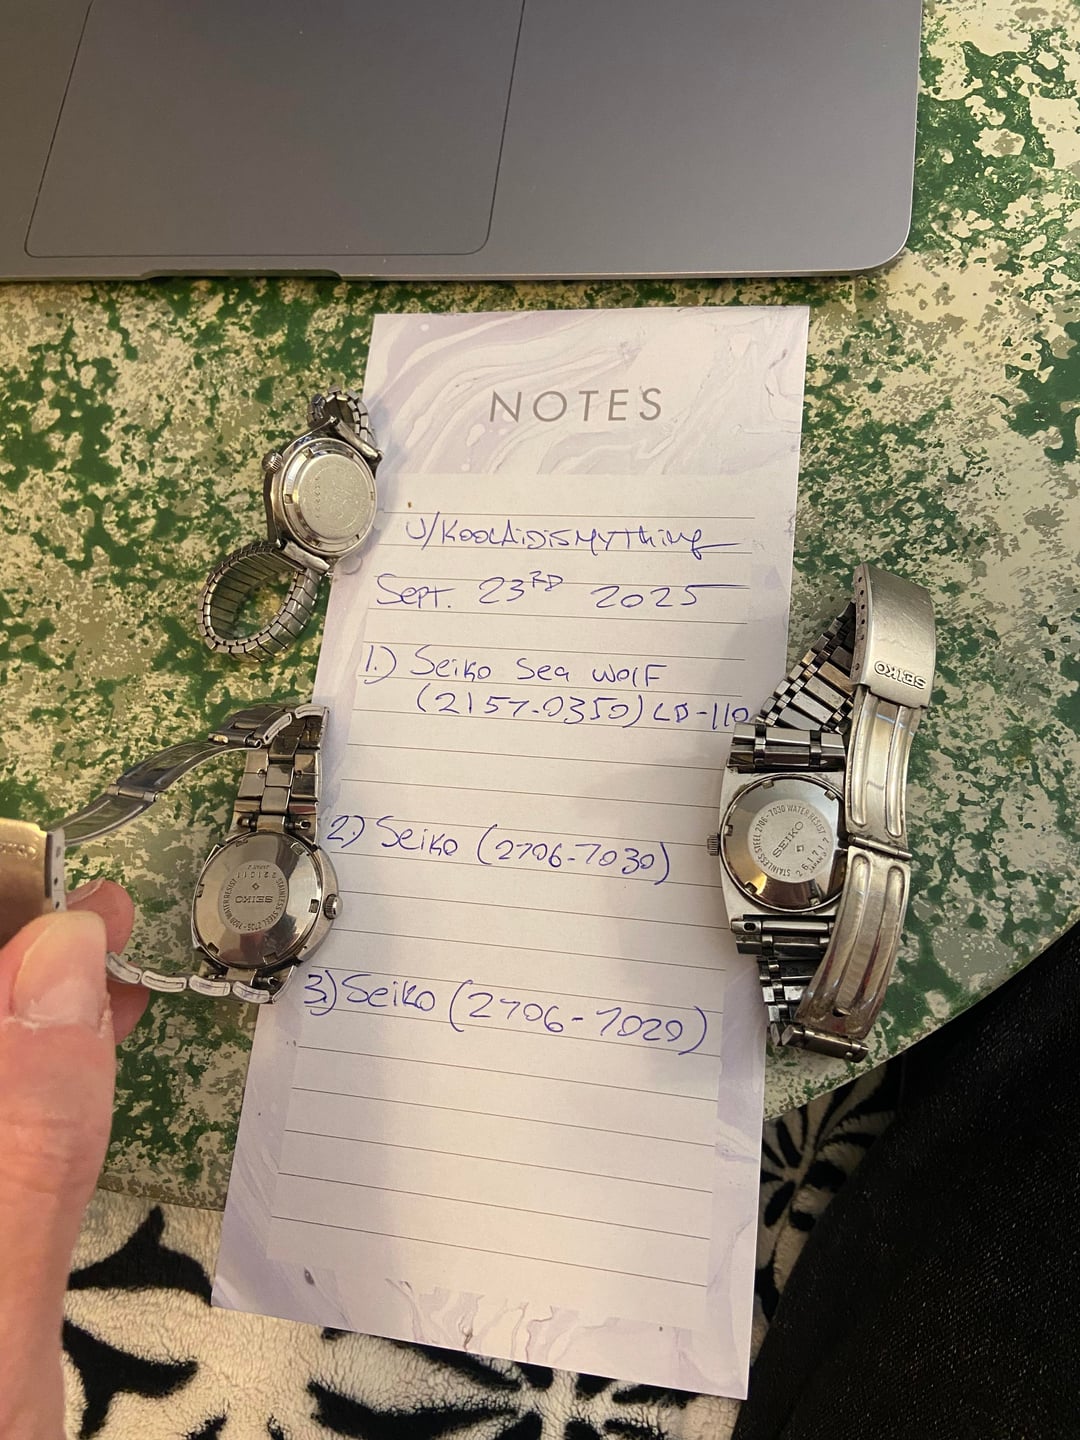 NOTES
u/KoolAidisMyThing
Sept. 23RD 2025
1.) Seiko Sea Wolf
(2157-0350) LD-110
2.) Seiko (2706-7030)
3.) Seiko (2706-7020)
SEIKO
STAINLESS STEEL 2706-7030 WATER RESIST
SEIKO
STAINLESS STEEL 2706-7020 WATER RESIST
SEIKO